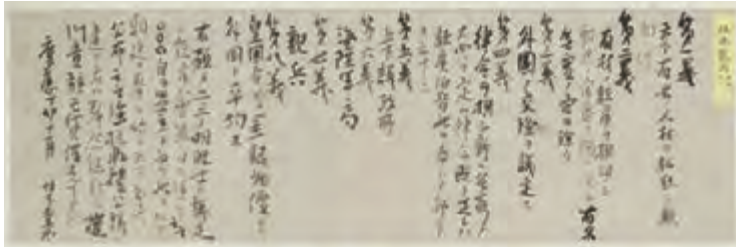 第一義
天下有名ノ人材ヲ招致シ顧
問ニ供フ
第二義
有材ノ諸侯ヲ撰用シ
朝廷ノ官爵ヲ賜ヒ現今有名
無実ノ官ヲ除ク
第三義
外国ノ交際ヲ議定ス
第四義
律令ヲ撰シ新ニ無窮ノ
大典ヲ定ム律令既ニ定レハ
諸侯伯皆此ヲ奉シテ部下
ヲ率ス
第五義
上下議政所
第六義
海陸軍局
第七義
親兵
第八義
皇国今日ノ金銀物価ヲ
外国ト平均ス
右預メ二三ノ明眼士ト議定
シ諸侯会盟ノ日ヲ待ツテ云云
○○○自ラ盟主ト為リ此ヲ以テ
朝廷ニ奉リ始テ天下万民ニ
公布云云強抗非礼公議ニ
違フ者ハ断然征討ス権
門貴族モ貸借スル事ナシ
慶応丁卯十一月 坂本直柔